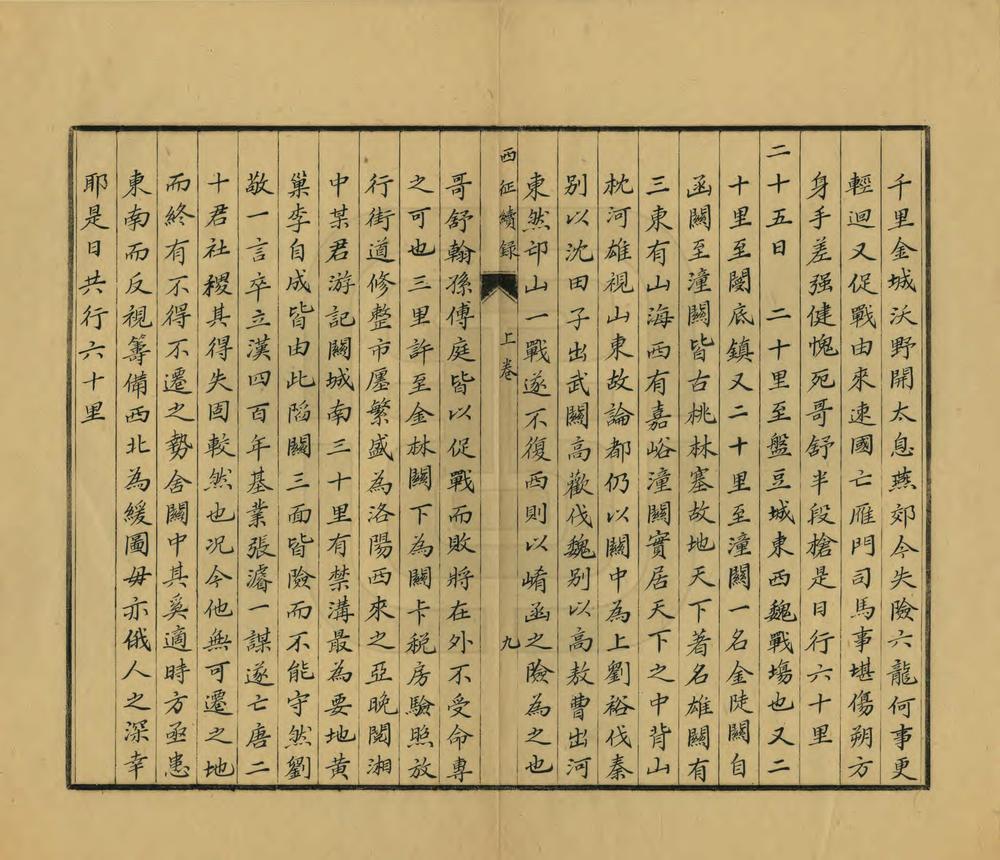 千里金城沃野開太息燕郊今失險六龍何事更
輕迴又促戰由來速國亡雁門司馬事堪傷朔方
身手差强健愧死哥舒半段槍是日行六十里
二十五日　二十里至盤豆城東西魏戰塲也又二
十里至閿底鎮又二十里至潼關一名金陡關自
函關至潼關皆古桃林塞故地天下著名雄關有
三東有山海西有嘉峪潼關實居天下之中背山
枕河雄視山東故論都仍以關中為上劉裕伐秦
别以沈田子出武關高歡伐魏别以高敖曹出河
東然邙山一戰遂不復西則以崤函之險為之也
西征續録　上卷　九
哥舒翰孫傅庭皆以促戰而敗將在外不受命專
之可也三里許至金林關下為關卡税房驗照放
行街道修整市廛繁盛為洛陽西來之亞晚閲湘
中某君游記關城南三十里有禁溝最為要地黄
巢李自成皆由此䧟關三面皆險而不能守然劉
敬一言卒立漢四百年基業張濬一謀遂亡唐二
十君社稷其得失固較然也况今他無可遷之地
而終有不得不遷之勢舍關中其奚適時方亟患
東南而反視籌備西北為緩圖毋亦俄人之深幸
耶是日共行六十里